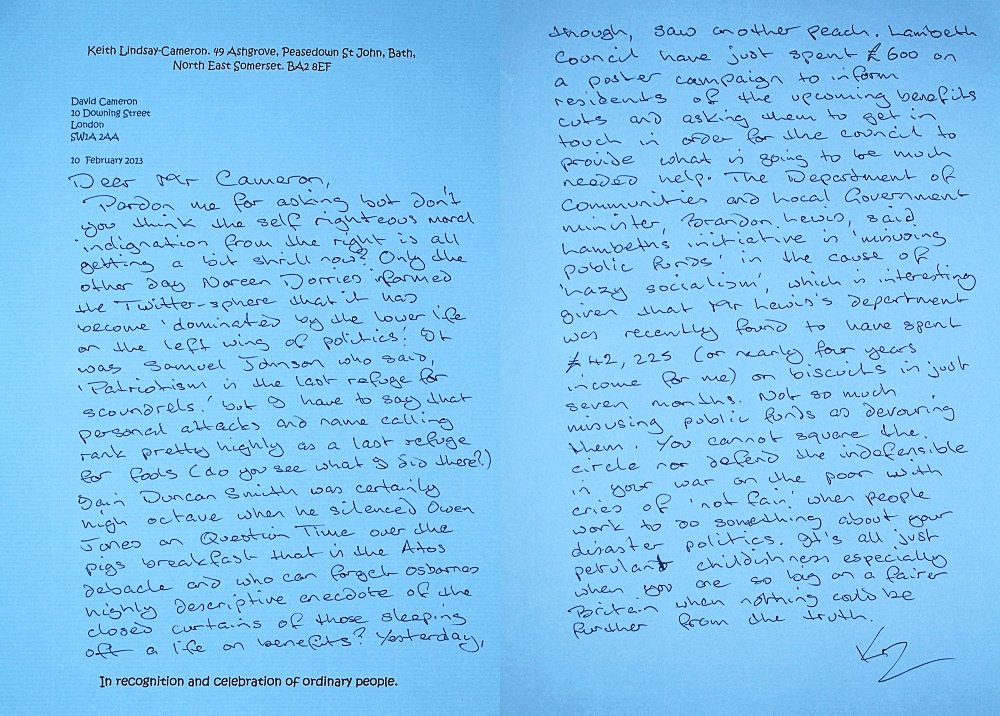 Keith Lindsay-Cameron. 49 Ashgrove, Peasedown St John, Bath,
North East Somerset. BA2 8EF
David Cameron
10 Downing Street
London
SW1A 2AA
10 February 2013
Deer Mr Cameron,
Pardon me for asking but don't
you think the self righteous moral
indignation from the right is all
getting a bit shrill now? Only the
other day Noreen Dorries informed
the Twitter-sphere that it has
become 'dominated by the lower life
on the left wing of politics.' It
was Samuel Johnson who said,
'Patriotism is the last refuge for
scoundrels.' but I have to say that
personal attacks and name calling
rank pretty highly as a last refuge
for fools (do you see what I did there?)
Iain Duncan Smith was certainly
high octave when he silenced Owen
Jones on Question Time over the
pigs breakfast that is the Atos
debacle and who can forget Osbornes
highly descriptive anecdote of the
closed curtains of those sleeping
off a life on benefits? Yesterday,
In recognition and celebration of ordinary people.
though, saw another peach. Lambeth
Council have just spent £600 on
a poster campaign to inform
residents of the upcoming benefits
cuts and asking them to get in
touch in order for the council to
provide what is going to be much
needed help. The Department of
Communities and Local Government
minister, Brandon Lewis, said
Lambeths initiative is 'misusing
public funds' in the cause of
'hazy socialism', which is interesting
given that Mr Lewis's department
was recently found to have spent
£42,225 (or nearly four years
income for me) on biscuits in just
seven months. Not so much
misusing public funds as devouring
them. You cannot square the
circle nor defend the indefensible
in your war on the poor with
cries of 'not fair' when people
work to do something about your
disaster politics. It's all just
petrulant childishness especially
when you are so big on a fairer
Britain when nothing could be
further from the truth.